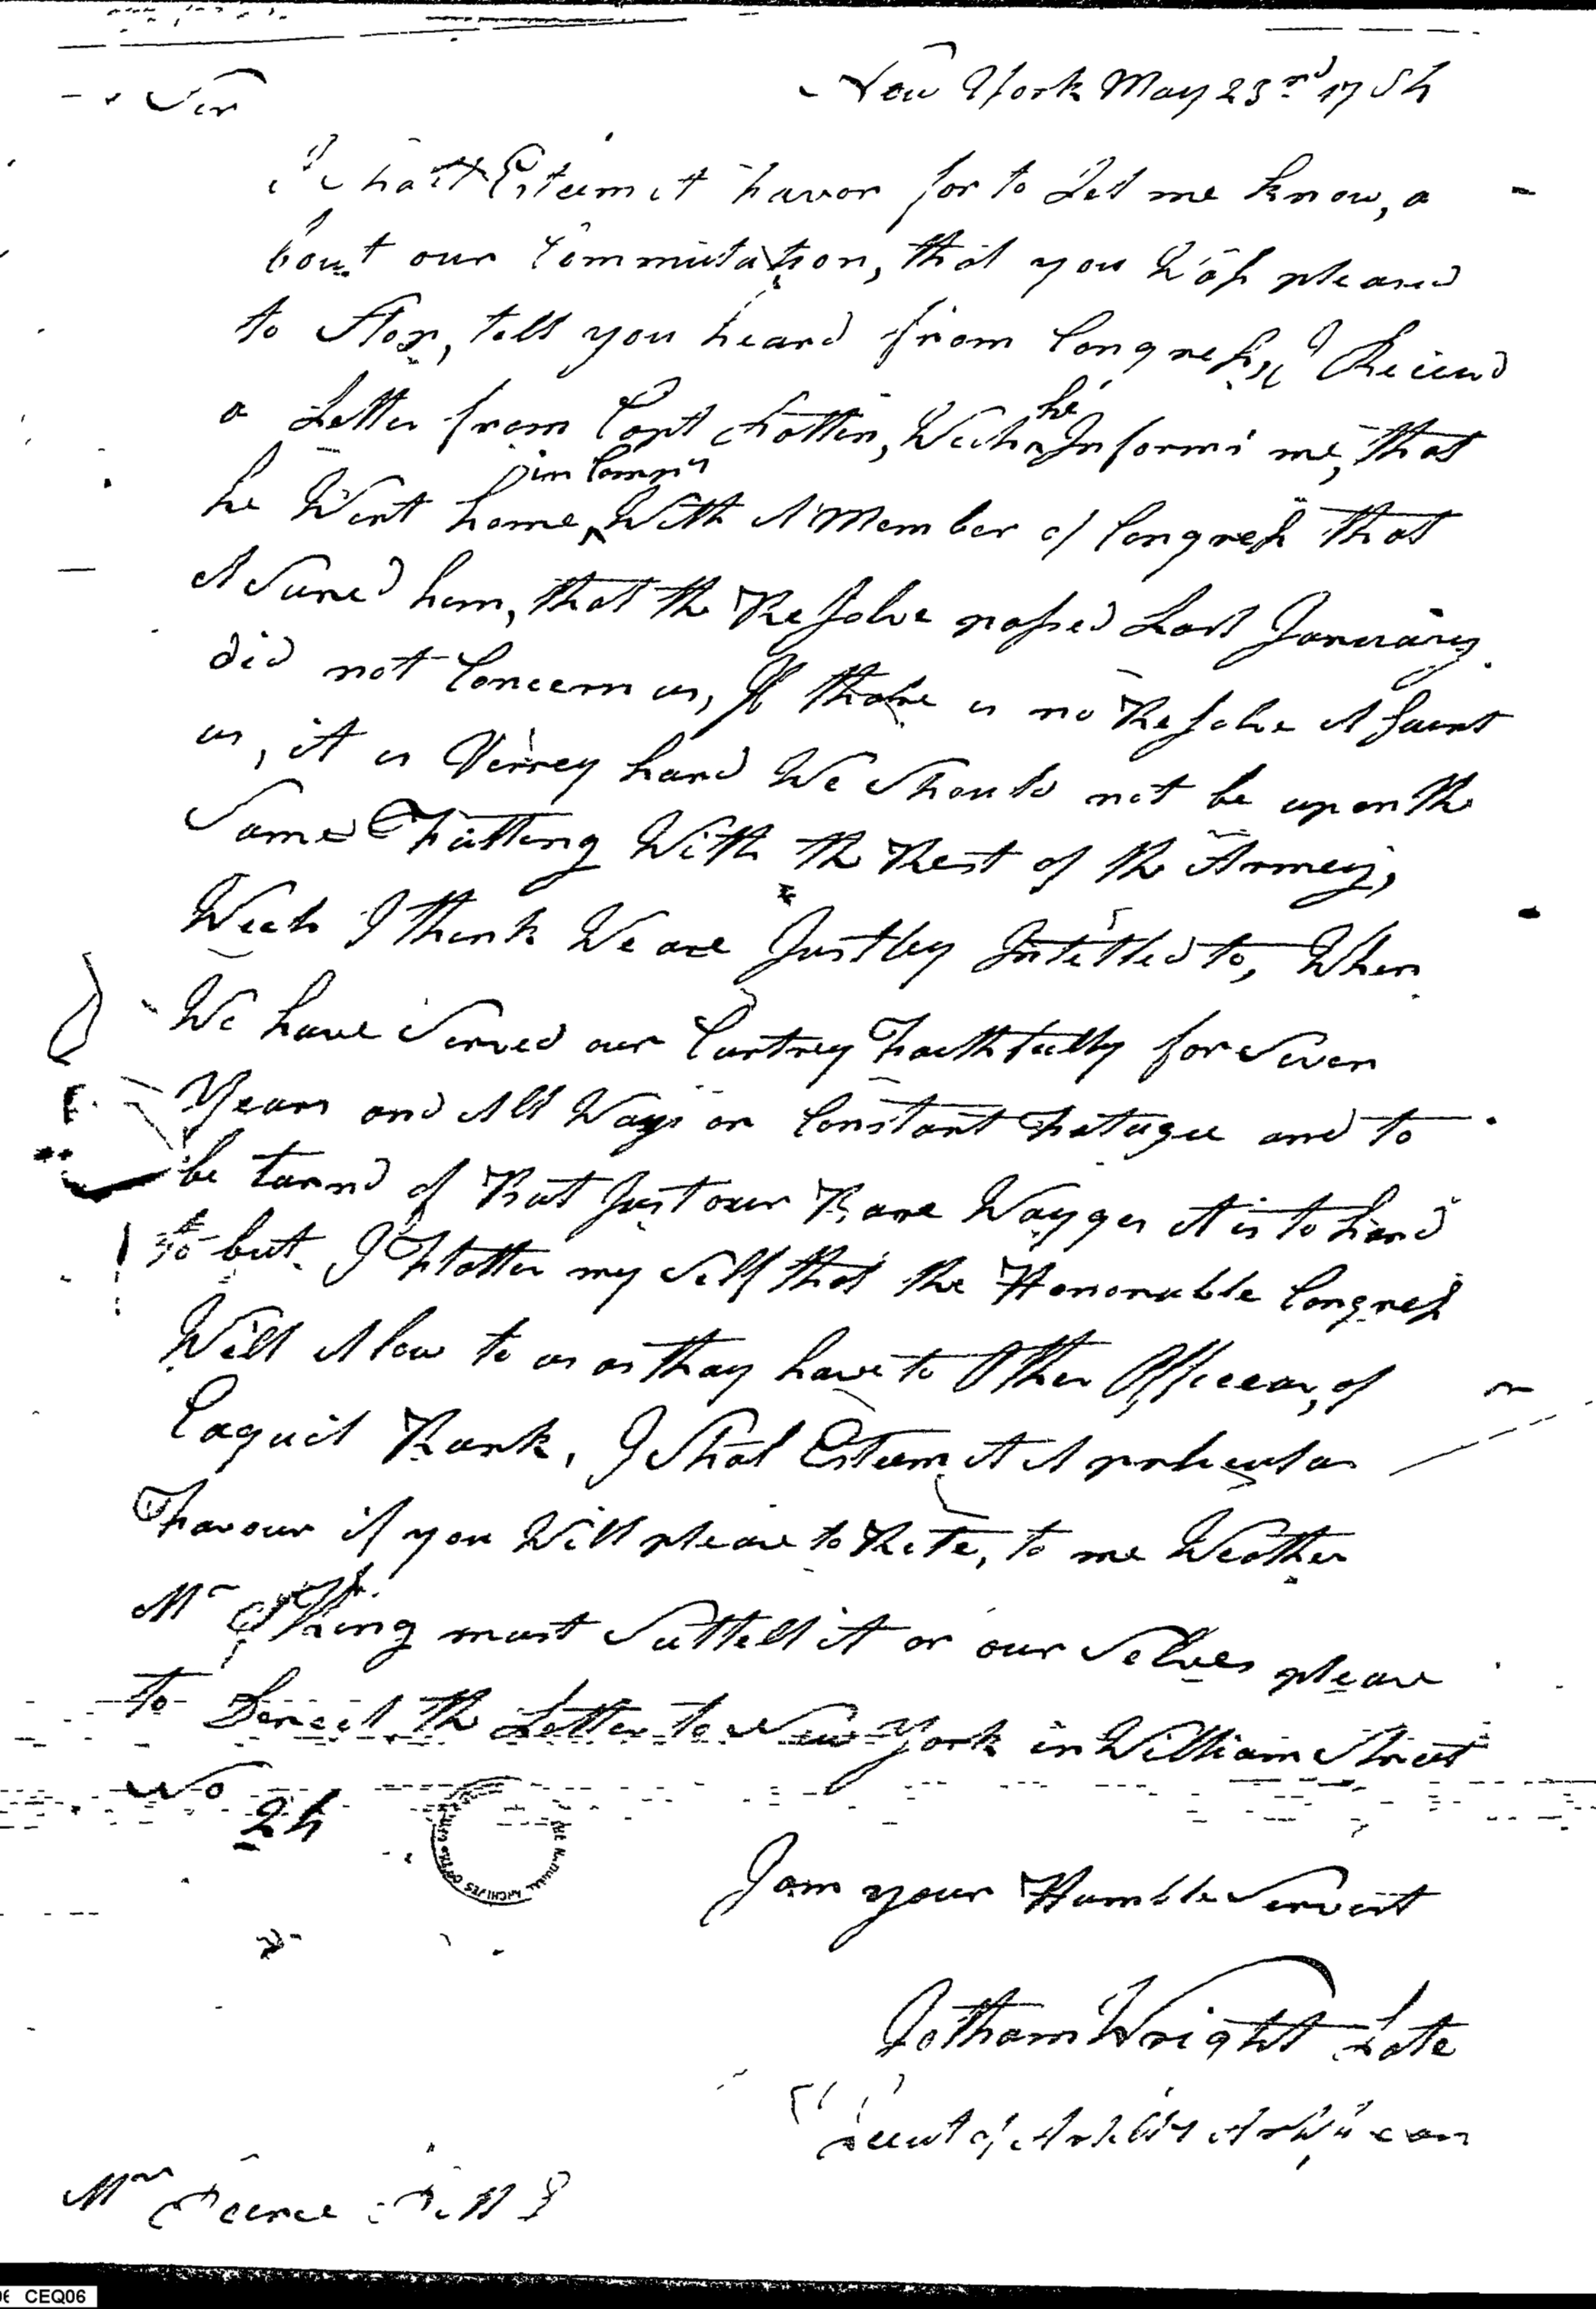 New York May 23rd 1784
Sir
I Shall Esteem it favor for to Let me know, a
bout our Commutation, that you Was pleased
to Stop, tell you heard from Congress, I Recieved
a Letter from Capt , Wich he Informs me, that
he Went home, in Compy With A Member of Congress that
Asured him, that the Resolve passed Last January
did not Concern us, If thare is no Resolve Against
us, it is Verrey hard We Should not be upon the
Same Futting With the Rest of the Armey,
Wich I think We are Justley Intetled to, When
We have Served our Cuntrey Faithfully for Seven
Years and All Ways on Constant Fatugue and to
be turnd of But Just our Bare Wayges it is to hard
to but I Flatter my Self that the Honorable Congress
Will Alow to us as thay have to Other Officears, of
Eaquil Rank, I Shal Esteem it A perticular
Favour if you Will please to Rite, to me Weather
Mr King must Suttell it or our Selves please
to Derect the Letter to New York in William Street
No 24
THE NATIONAL ARCHIVES OF THE
I am your Humble Servent
Jotham Wright Late
Lieut of
Mr Pearce
CEQ06